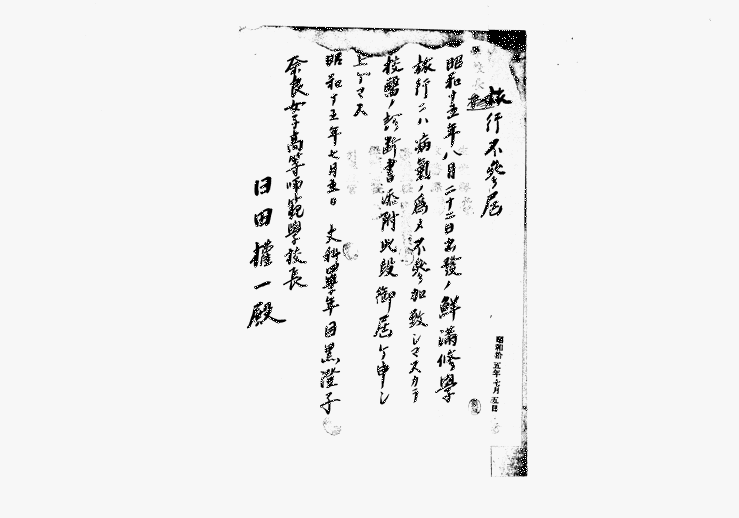 旅行不參届
昭和十五年八月二十二日出發ノ鮮滿修學
旅行ニハ病氣ノ爲メ不參加致シマスカラ
校醫ノ診斷書添附此段御届ケ申シ
上ゲマス
昭和十五年七月五日 文科四學年 目黑澄子
奈良女子高等師範學校長
臼田權一殿
昭和拾五年七月五日